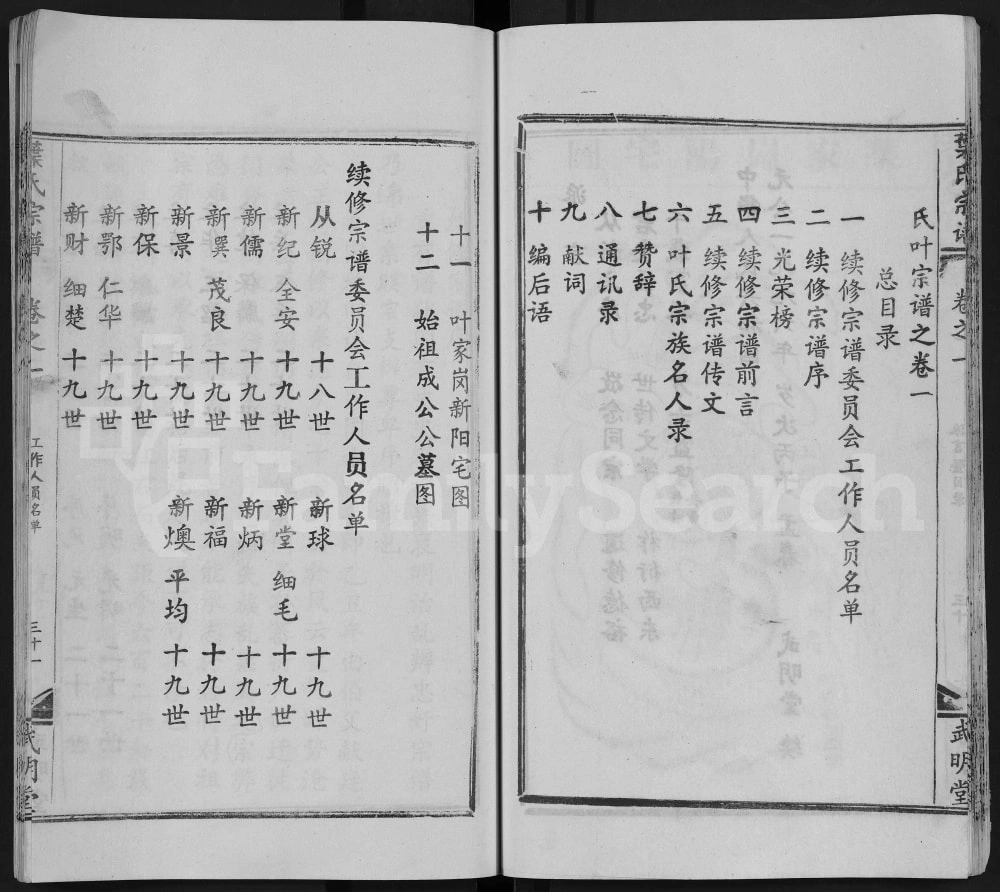 葉氏宗谱 卷之一
武明堂
氏叶宗谱之卷一
总目录
一 续修宗谱委员会工作人员名单
二 续修宗谱序
三 光荣榜
四 续修宗谱前言
五 续修宗谱传文
六 叶氏宗族名人录
七 赞辞
八 通讯录
九 献词
十 编后语
十一 叶家岗新阳宅图
十二 始祖成公公墓图
续修宗谱委员会工作人员名单
从锐 十八世 新球 十九世
新纪 全安 十九世 新堂 细毛 十九世
新儒 十九世 新炳 十九世
新撰 茂良 十九世 新福 十九世
新景 十九世 新燠 平均 十九世
新保 十九世
新鄂 仁华 十九世
新财 细楚 十九世
葉氏宗谱 卷之一 工作人员名单 三十一
武明堂
FamilySearch